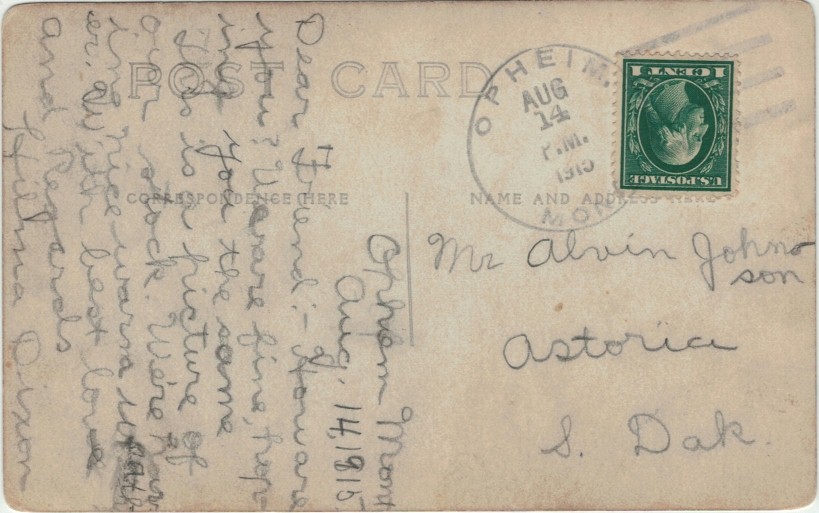 POST CARD
CORRESPONDENCE HERE
NAME AND ADDRESS HERE
OPHEIM
AUG
14
P.M.
1915
MON
U.S. POSTAGE
1 CENT 1
Mr Alvin John-
son
Astoria
S. Dak.
Ophiem Mont
Aug. 14, 1915
Dear Friend:- How are
you? We are fine, hop
ing you the same
This is a picture of
our stock. We're hav
ing nice warm weath
er. With best love
and Regards
Hilma Dixon